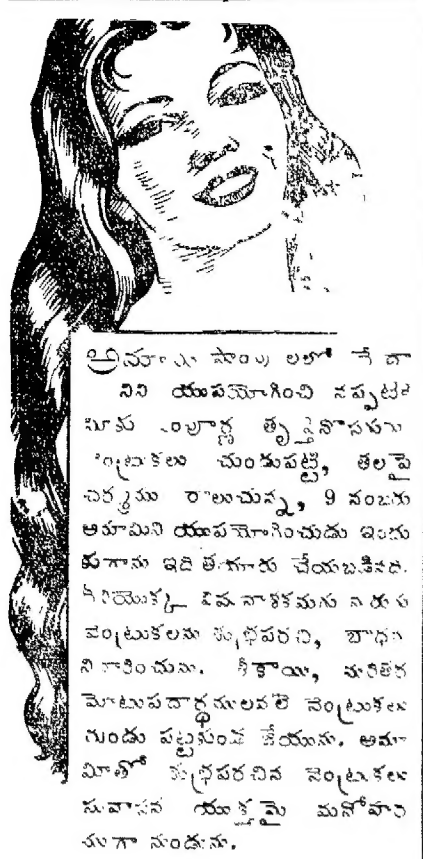 లలో
నిని యుపయోగించి నప్పటికి
మీకు సంపూర్ణ తృప్తినొసగును
వెంట్రుకలు చుండుపట్టి, తలపై
చర్మము రాలుచున్న, 9 నంబరు
అమామిని యుపయోగించుడు ఇందు
కుగాను ఇది తయారు చేయబడినది.
వెంట్రుకలను శుభ్రపరచి, బాధను
నివారించును. శీకాయి, మరితర
మోటుపదార్థములవలె వెంట్రుకలు
గుండు పట్టకుండ జేయును. అమా
మీతో శుభ్రపరచిన వెంట్రుకలు
సువాసన యుక్తమై మనోహర
ముగా నుండును.